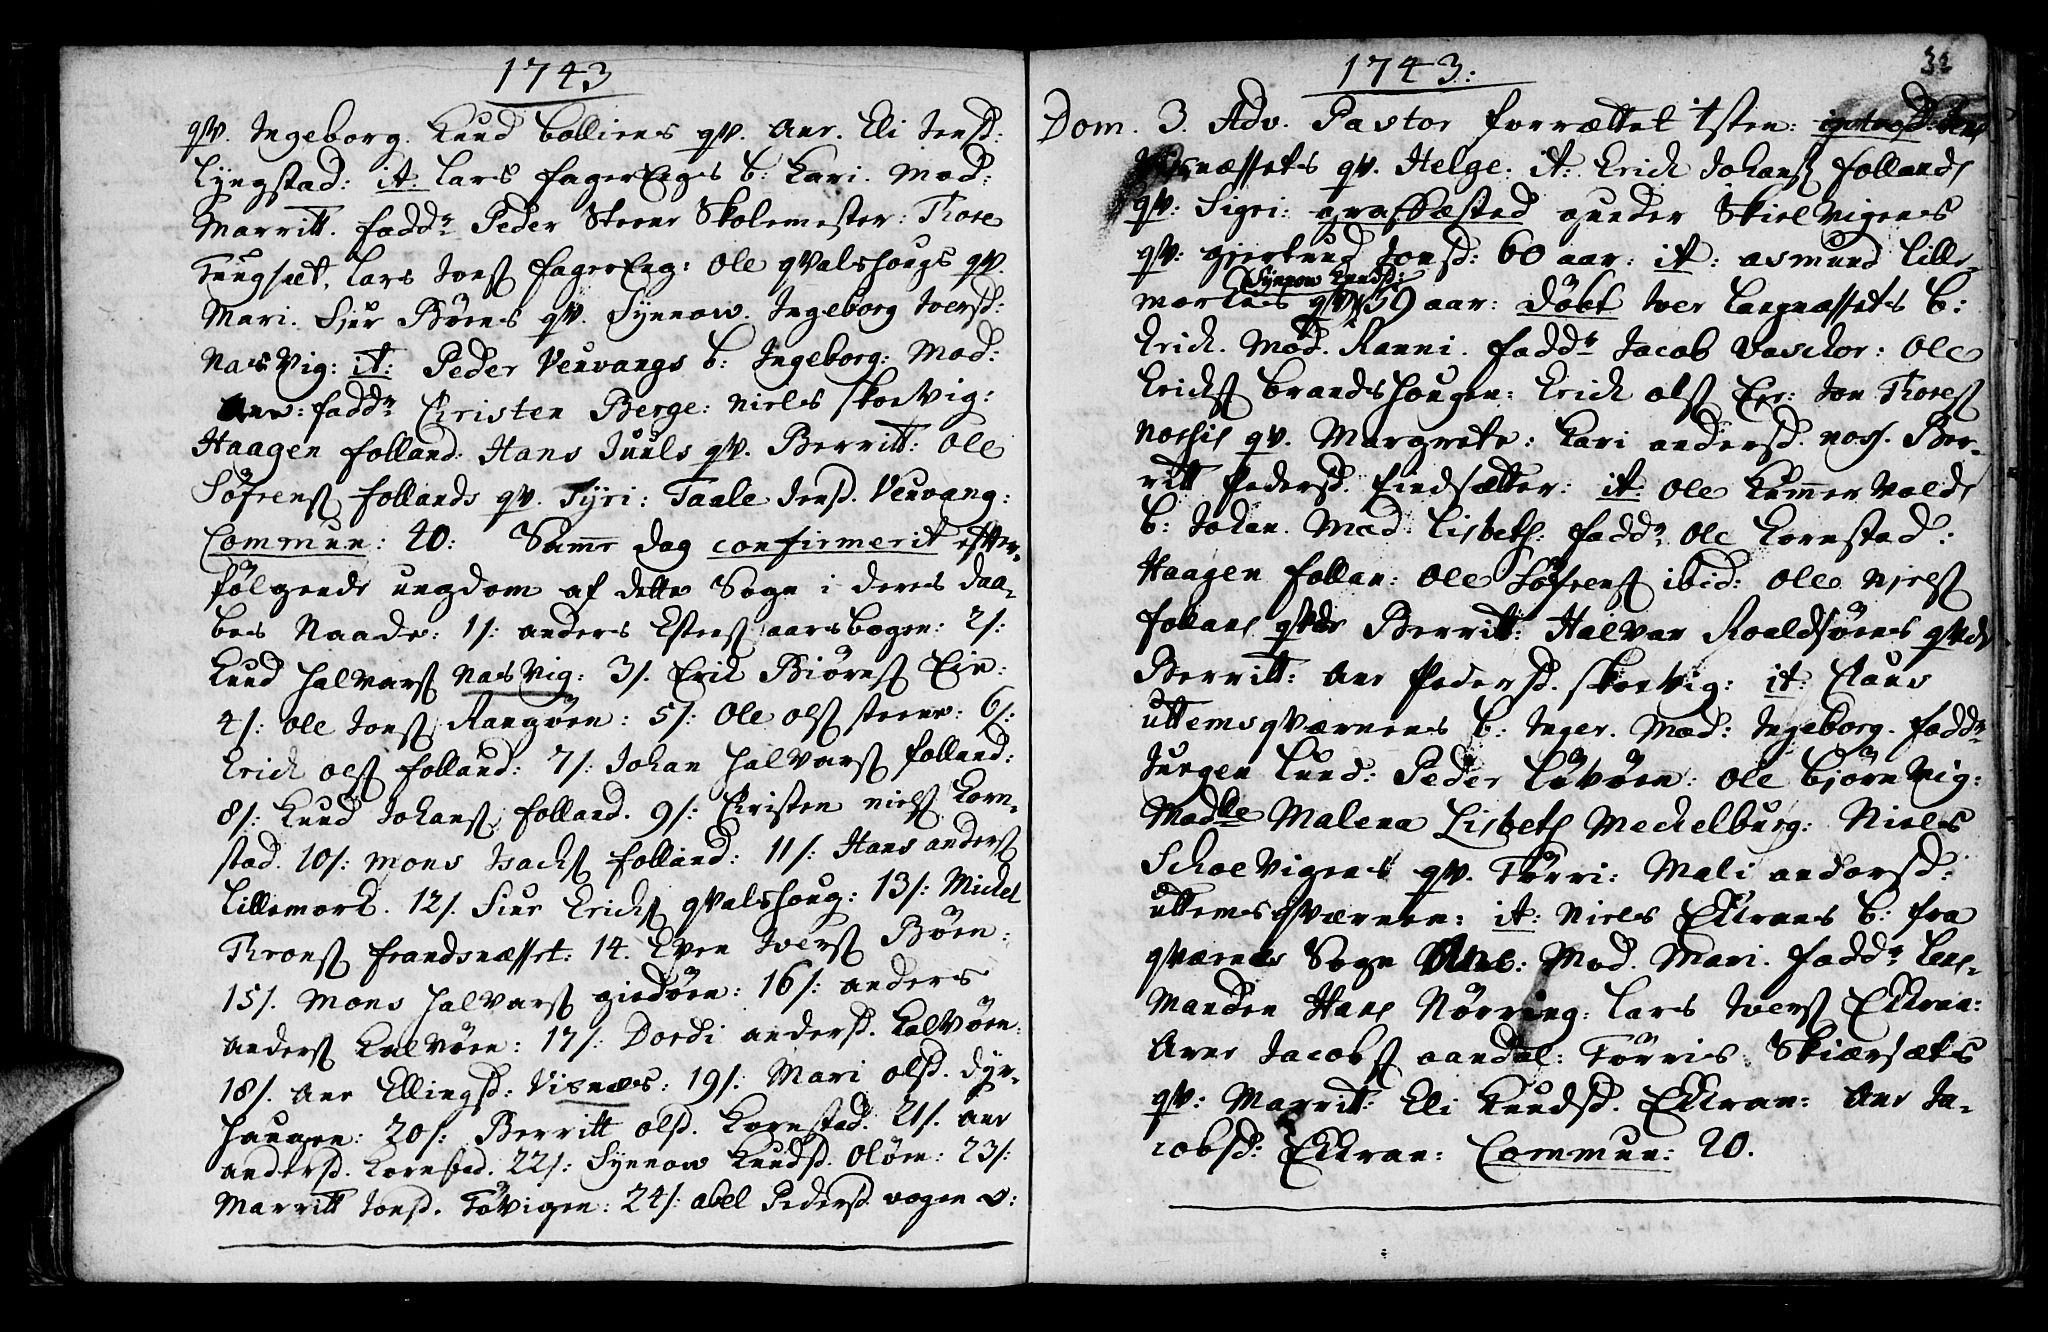 1743
qv. Ingeborg. Knud bolliens qv. Ane. Eli Jensd:
Lyngstad: it: Lars fagerEngs b: Kari. Mod:
Marritt. fadd: Peder Steene Skolemester: Thore
Tungsæt, Lars Jons fagerEng: Ole qvalshougs qv.
Mari. Siur Böens qv. Synnow. Ingeborg Iversd:
NasVig: it: Peder Veuvangs b: Ingeborg: Mod:
Ane: fadd: Christen Berge: Niels skoeVig:
Haagen folland. Hans Juuls qv. Berritt: Ole
Söfrens follands qv. Tyri: Taale Jensd. Veuvang:
Commun: 40: Samme dag confirmerit efter-
fölgende ungdom af dette Sogn i deres daa-
bes Naade: 1/: anders Estens aarsbogen: 2/:
Knud Halvars NasVig: 3/. Erik Biörns Eie:
4/: Ole Jons Rangöen: 5/: Ole ols steene: 6/:
Erich ols folland: 7/: Johan Halvars folland:
8/: Knud Johans folland. 9/: Christen niels Korn-
stad. 10/: Mons Isachs folland: 11/: Hans anders
Lillemork. 12/. Siur Erichs qvalshoug: 13/: Mickel
Throns frandsnæsset: 14. Even Ivers Böen:
15/. Mons Halvars giedöen: 16/: anders
Anders Kalvöen: 17/: Dordi andersd. Kalvöen:
18/. Ane Ellingsd: Visnæs: 19/: Mari olsd. dyr-
haugen: 20/: Berritt olsd. Kornstad. 21/. ane
andersd. Kornstad. 22/: Synnow Knudsd. Olöen: 23/:
Marritt Jonsd. Tövigen: 24/: abel Pedersd. vogen o:
1743:
32
Dom. 3. Adv. Pastor forrættet tsten:
næssets qv. Helge: it: Erich Johans follands
qv: Sigri: graffæsted gunder SkielVigens
qv: giertrud Jonsd: 60 aar: it: asmund Lille-
Synnow Knudsd:
morkens qv 59 aar: döbt Iver Langnæssets b:
Erich. Mod. Ranni. fadd: Jacob Vasckor: Ole
Erichs brandshougen: Erich ols Eee: Jon Thores
Noshis qv. Margrete: Kari andersd. nos. Ber-
ritt Pedersd. Eindsætter: it: Ole Kummervolds
b: Johan. Mod: Lisbeth: fadd: Ole Kornstad:
Haagen follan: Ole Söfrens ibid: Ole Niels
follans qvde Berritt: Halvar Roaldsöens qvde
Berritt: Ane Pedersd. skoevig: it: Claus
Uttemsqværnens b: Inger. Mod: Ingeborg. fadd:
Jurgen Lund: Peder Lövöen: Ole BjörnVig:
Madle Malena Lisbeth Meckelburg: Niels
SchoeVigens qv. Törri: Mali andersd:
Uttemsqværnen: it: Niels EcKrans b: fra
qværnes Sogn Ane: Mod. Mari. fadd: Lens-
manden Hans Nörring: Lars Ivers EcKran:
Arne Jacobs aandal: Törris Skiærsæts
qv: Marritt: Eli Knudsd. EcKran: Ane Ja-
cobsd: EcKran: Commun: 20.